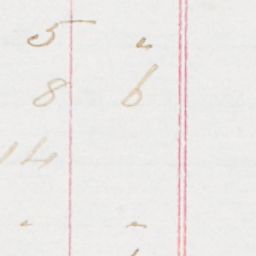 5 "
8 6
14
" "